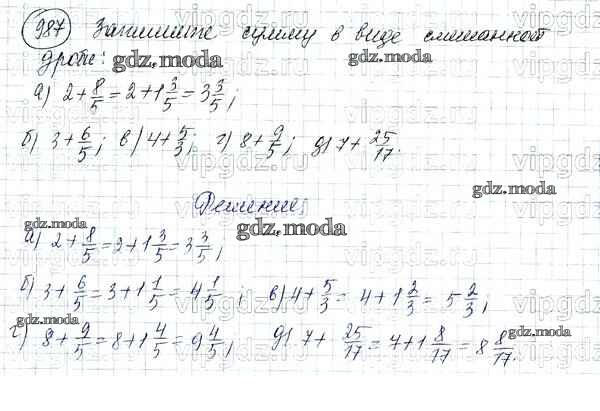 987 Запишите сумму в виде смешанной
дроби: gdz.moda gdz.moda
а) 2+8/5=2+1 3/5=3 3/5;
б) 3+6/5; в) 4+5/3; г) 8+9/5; д) 7+25/17.
gdz.moda
Решение.
gdz.moda gdz.moda
а) 2+8/5=2+1 3/5=3 3/5;
б) 3+6/5=3+1 1/5=4 1/5; в) 4+5/3=4+1 2/3=5 2/3;
gdz.moda gdz.moda
г) 8+9/5=8+1 4/5=9 4/5; д) 7+25/17=7+1 8/17=8 8/17.
vipgdz.ru